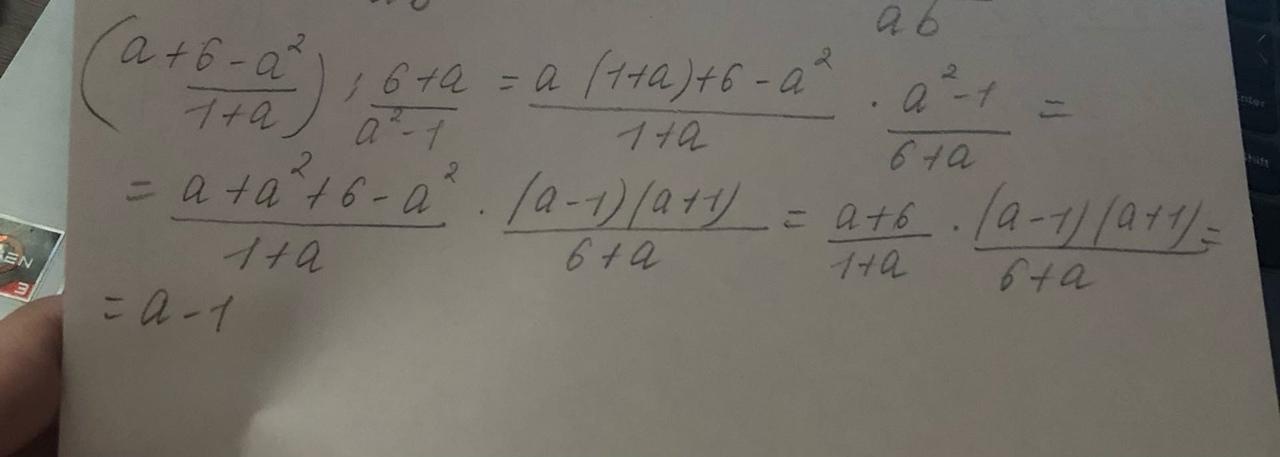 ab
(a + (6 - a²)/(1+a)) : (6+a)/(a²-1) = (a(1+a)+6-a²)/(1+a) · (a²-1)/(6+a) =
= (a+a²+6-a²)/(1+a) · ((a-1)(a+1))/(6+a) = (a+6)/(1+a) · ((a-1)(a+1))/(6+a) =
= a-1